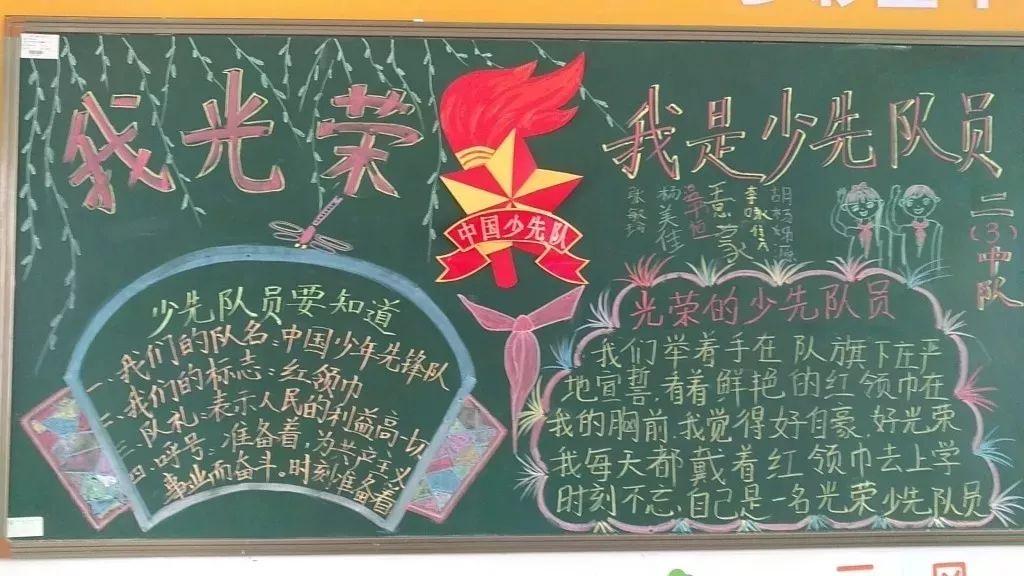 我光荣
我是少先队员
中国少先队
二(3)中队
少先队员要知道
一、我们的队名:中国少年先锋队
二、我们的标志:红领巾
三、队礼:表示人民的利益高一切
四、呼号:准备着,为共产主义
事业而奋斗。时刻准备着
光荣的少先队员
我们举着手在队旗下庄严
地宣誓.看着鲜艳的红领巾在
我的胸前.我觉得好自豪.好光荣
我每天都戴着红领巾去上学
时刻不忘.自己是一名光荣少先队员